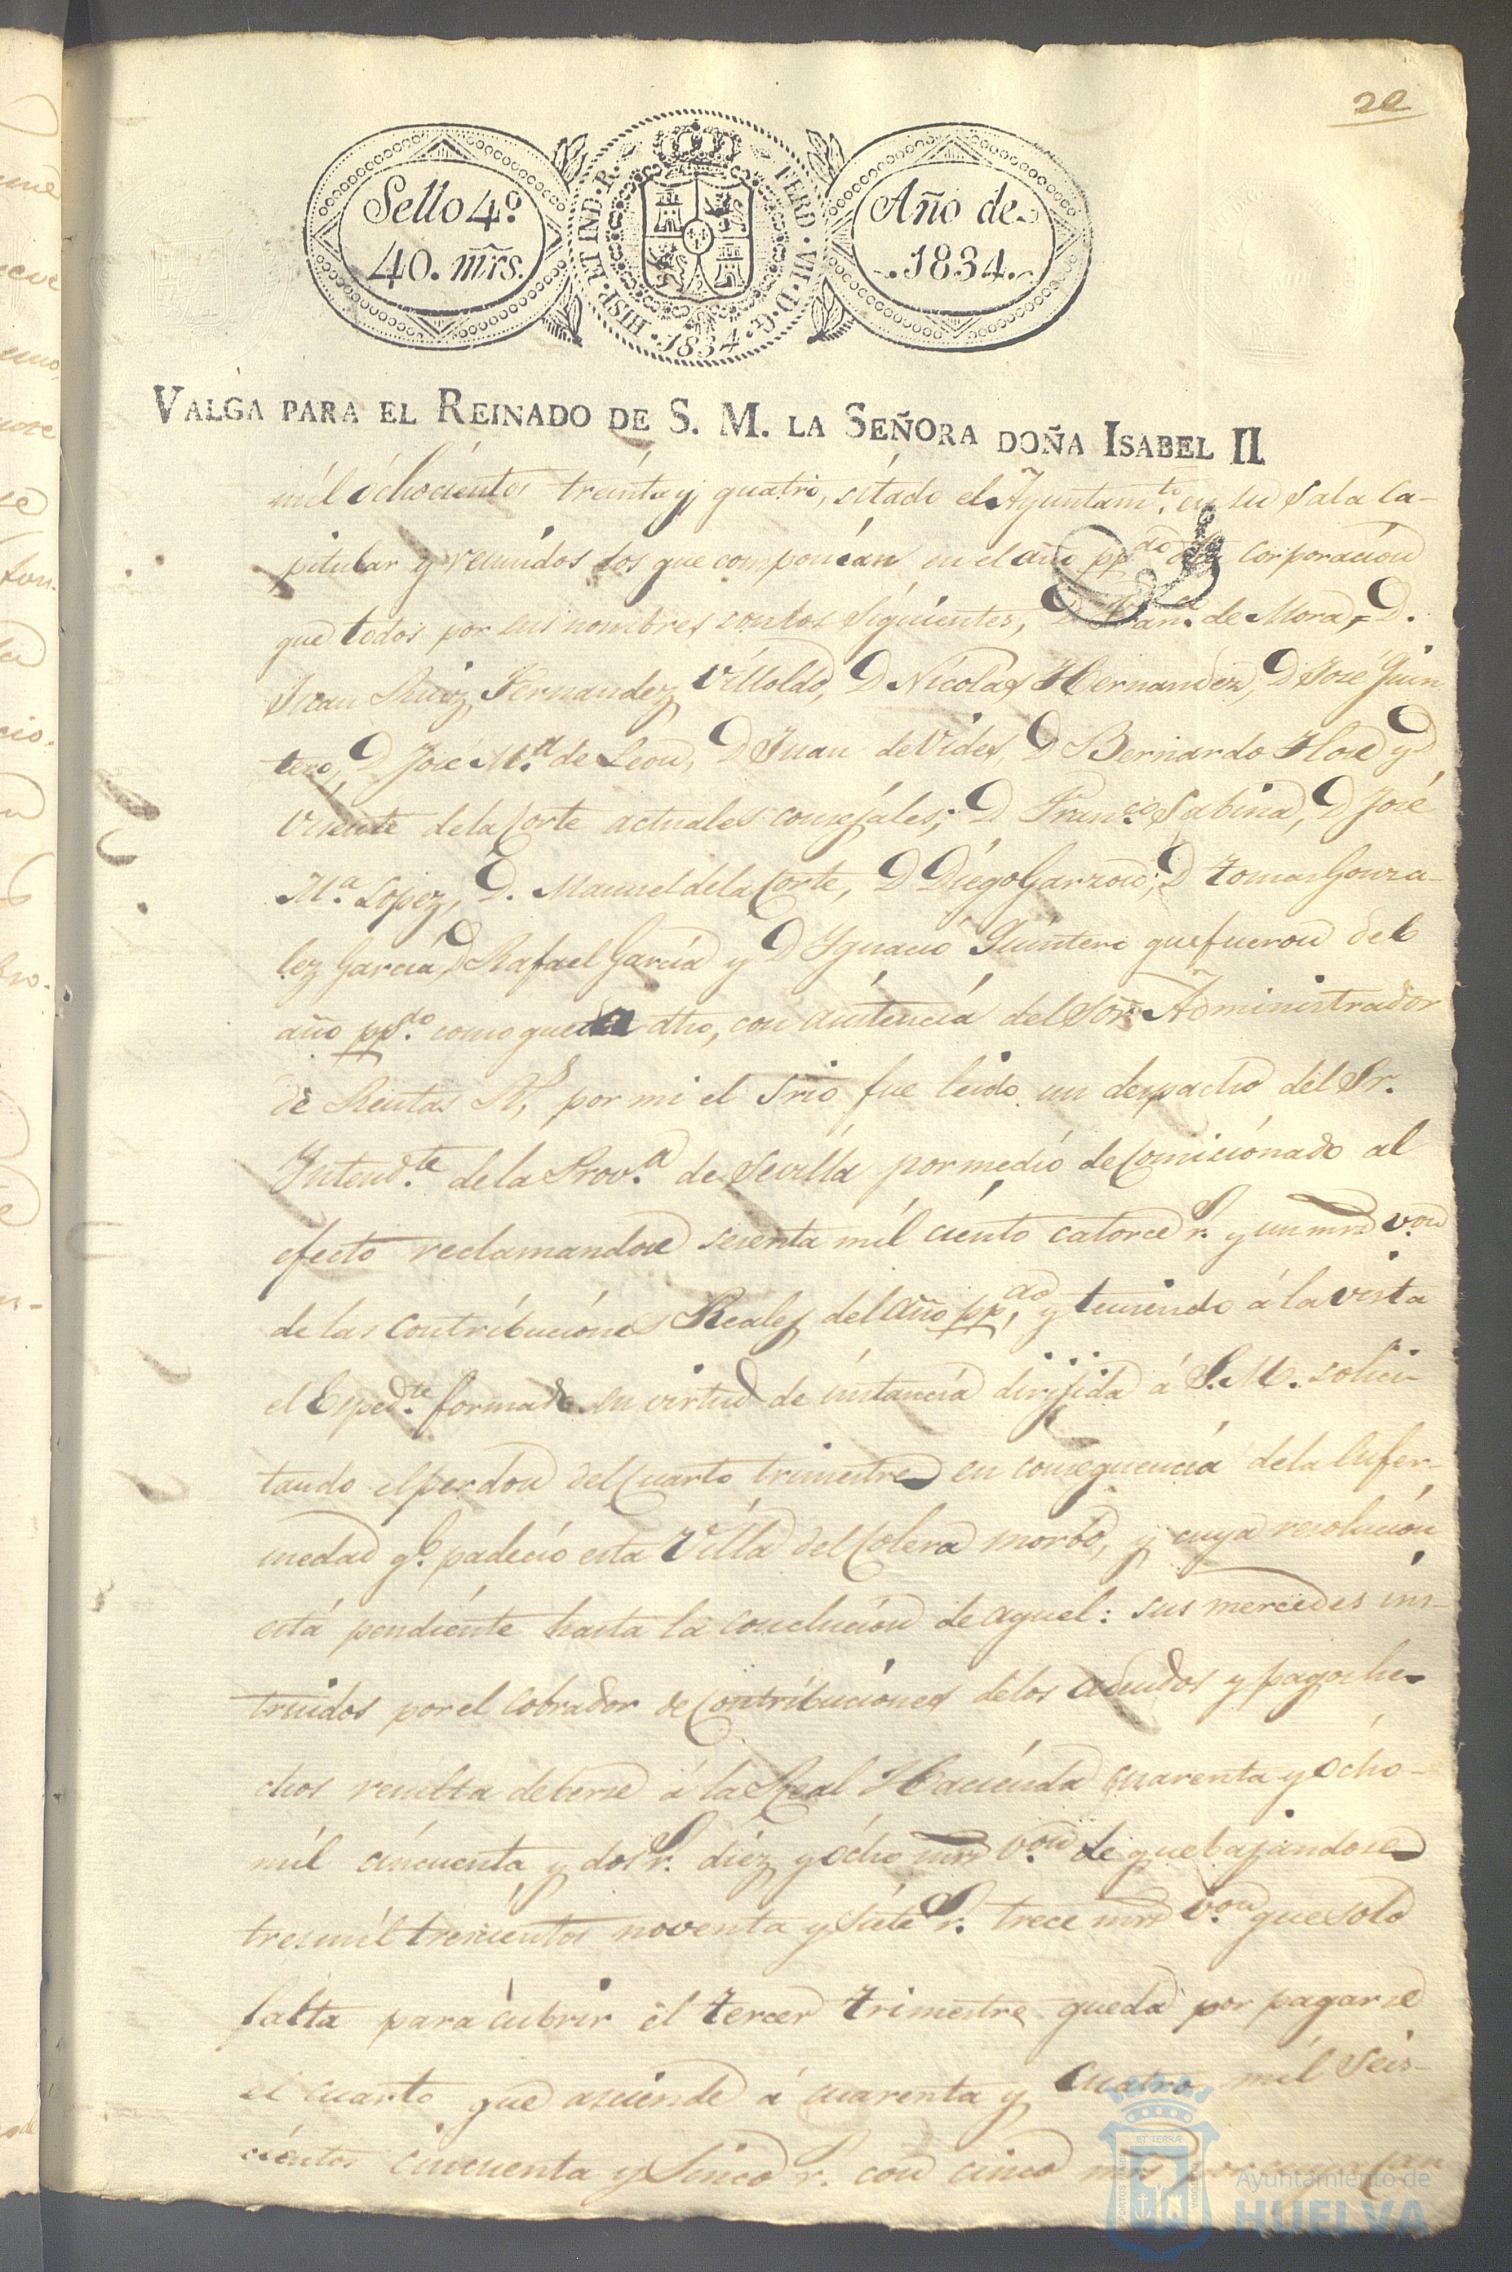 20
Sello 4.º
40. mrs.
HISP. ET IND. R. FERD. VII. D. G. 1834.
Año de
1834.
VALGA PARA EL REINADO DE S. M. LA SEÑORA DOÑA ISABEL II
mil ochocientos treinta y quatro, sitado el Ayuntam.to en su sala ca-
pitular y reunidos los que componian en el año pp.do corporacion
que todos por sus nombres son los siguientes, D. Fran.co de Mora, D.
Juan Ruiz Fernandez Villoldo, D Nicolas Hernandez, D José Quin
tero, D José M.a de Leon, D Juan de Vides, D Bernardo Flore y D
Visente de la Corte actuales consejales; D Fran.co Sabina, D José
M.a Lopez, D. Manuel de la Corte, D Diego Garzon, D Tomas Gonza-
lez Garcia, D Rafael Garcia y D Ygnacio Quintero que fueron del
año pp.do como queda dho, con asistencia del Sor Administrador
de Rentas R.s por mi el Srio fue leido un despacho del Sr.
Yntend.te de la Prov.a de Sevilla por medio de Comicionado al
efecto reclamandose sesenta mil ciento catorce r.s y un mrs v.on
de las contribuciones Reales del año pp.do, y teniendo á la vista
el Esped.te formado en virtud de instancia dirijida á S. M. solici-
tando el perdon del Cuarto trimestre en consequencia de la Enfer-
medad q.e padecio esta Villa del Colera morbo, y cuya resolucion
está pendiente hasta la conclucion de aquel: sus mercedes ins-
truidos por el cobrador de Contribuciones de los adeudos y pagos he-
chos resulta deberse á la Real Hacienda cuarenta y ocho-
mil cincuenta y dos r.s diez y ocho mrs v.on de que bajandose
tres mil trescientos noventa y siete r.s trece mrs v.on que solo
falta para cubrir el tercer trimestre queda por pagarse
el cuarto que asciende á cuarenta y cuatro mil seis-
cientos cincuenta y Sinco r.s con cinco mrs por cuya
Ayuntamiento de
HUELVA